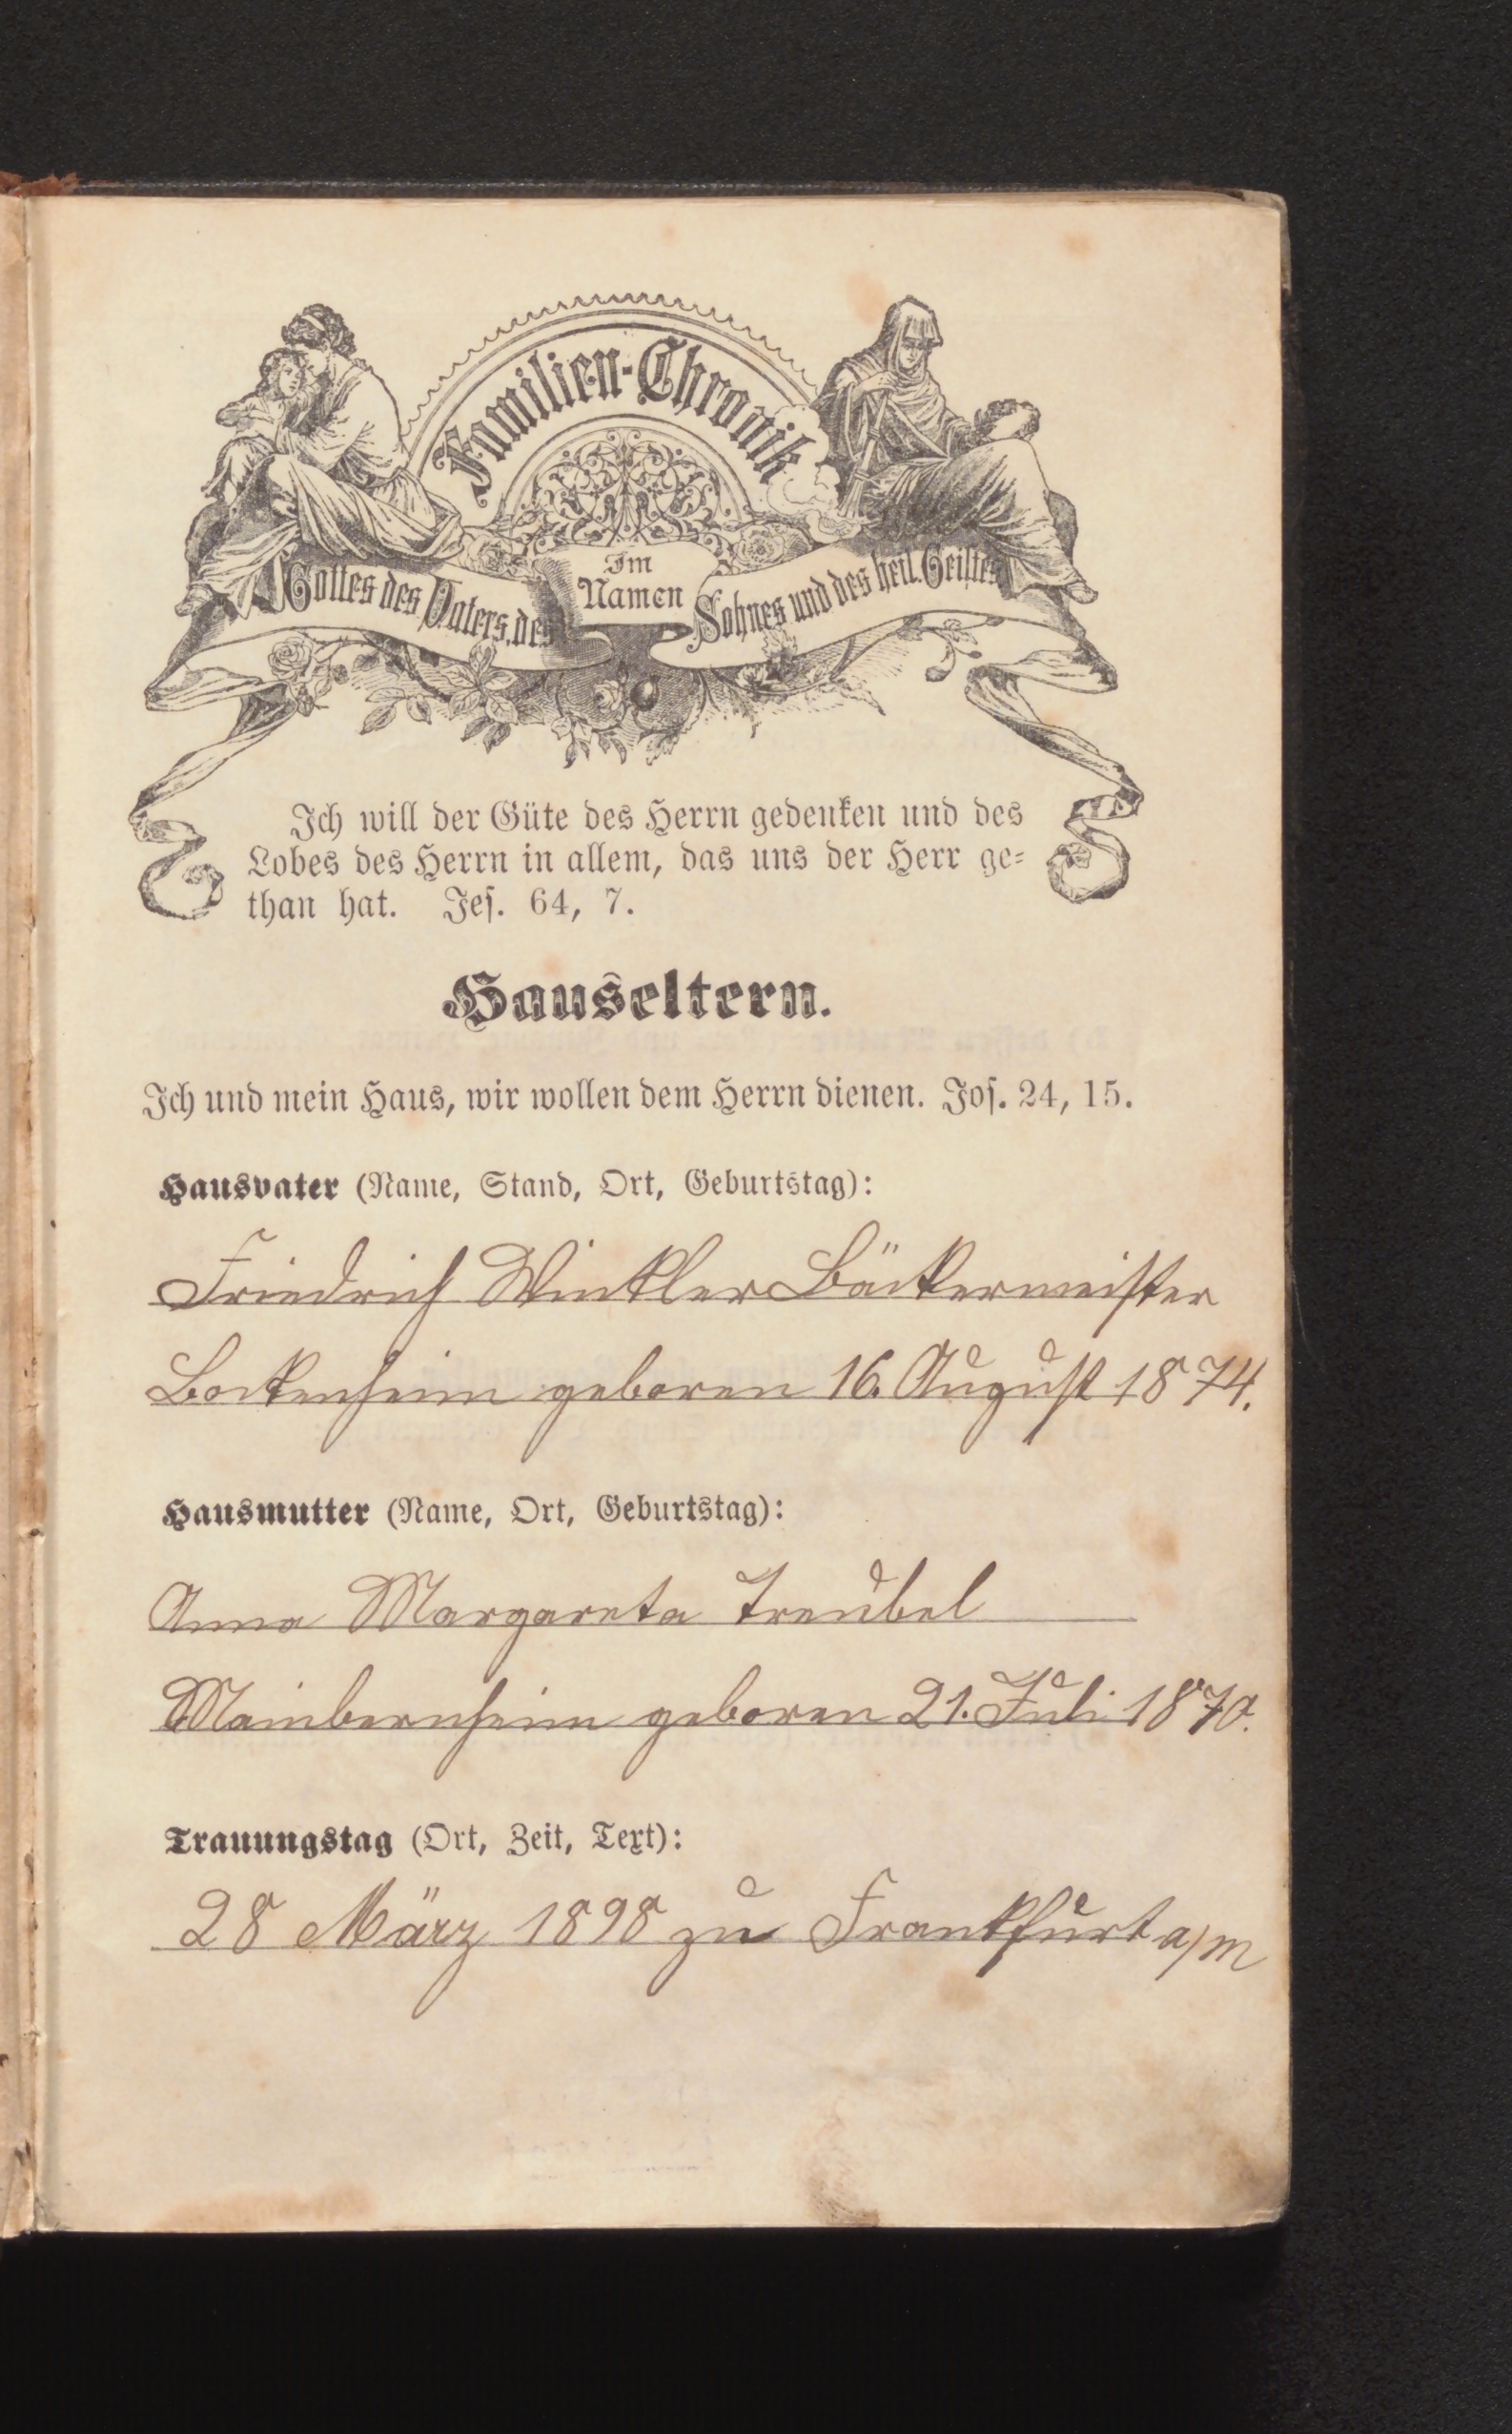 Familien-Chronik
Im
Namen
Gottes des Vaters, des
Sohnes und des heil. Geistes
Ich will der Güte des Herrn gedenken und des
Lobes des Herrn in allem, das uns der Herr ge-
than hat. Jes. 64, 7.
Hauseltern.
Ich und mein Haus, wir wollen dem Herrn dienen. Jos. 24, 15.
Hausvater (Name, Stand, Ort, Geburtstag):
Friedrich Winkler Bäckermeister
Bockenheim geboren 16. August 1874.
Hausmutter (Name, Ort, Geburtstag):
Anna Margareta Treubel
Mainbernheim geboren 21. Juli 1870.
Trauungstag (Ort, Zeit, Text):
28 März 1898 zu Frankfurt a/m